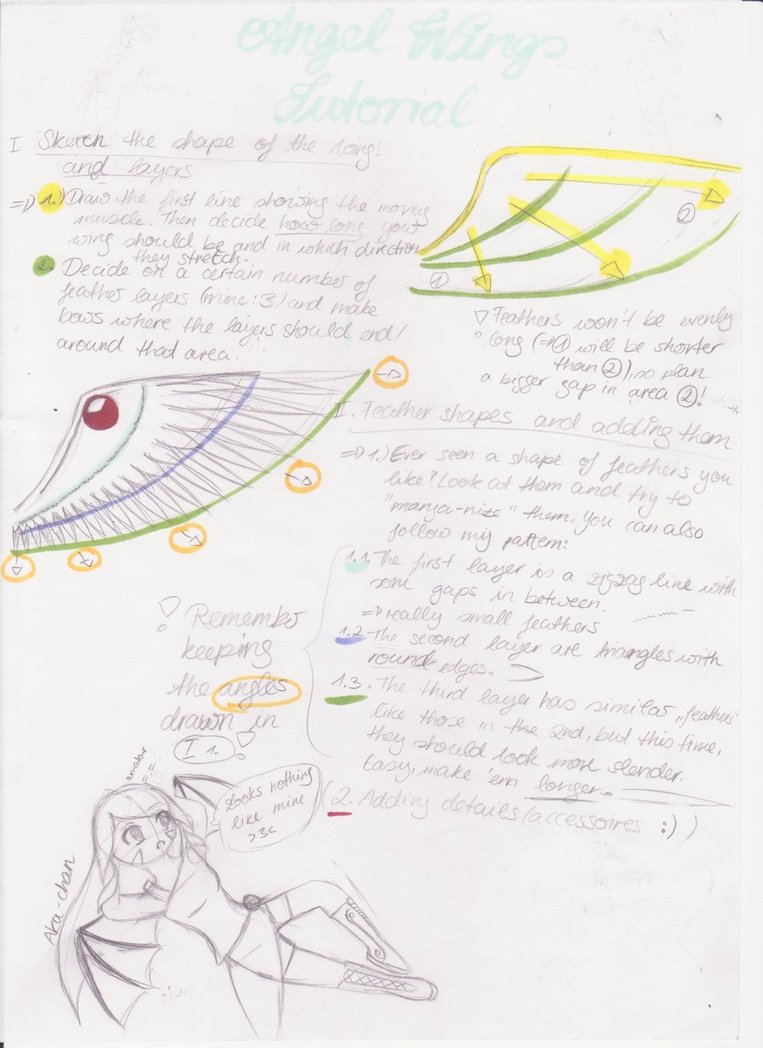 Angel Wings
Tutorial
I Sketch the shape of the wing!
and layers
=> 1.) Draw the first line showing the moving
muscle. Then decide how long your
wing should be and in which direction
they stretch.
2. Decide on a certain number of
feather layers (mine: 3) and make
bows where the layers should end/
around that area!
1
2
! Feathers won't be evenly
long (=> 1 will be shorter
than 2), so plan
a bigger gap in area 2!
II. Feather shapes and adding them
=> 1.) Ever seen a shape of feathers you
like? Look at them and try to
"manga-nize" them. You can also
follow my pattern:
1.1. The first layer is a zigzag line with
some gaps in between.
=> really small feathers
1.2 The second layer are triangles with
round edges.
1.3. The third layer has similar „feathers"
like those in the 2nd, but this time,
they should look more slender.
Easy, make 'em longer.
(2. Adding details/accessoires :))
! Remember
keeping
the angles
drawn in
I 1. !
amateur
Looks nothing
like mine
>3<
Aka-chan